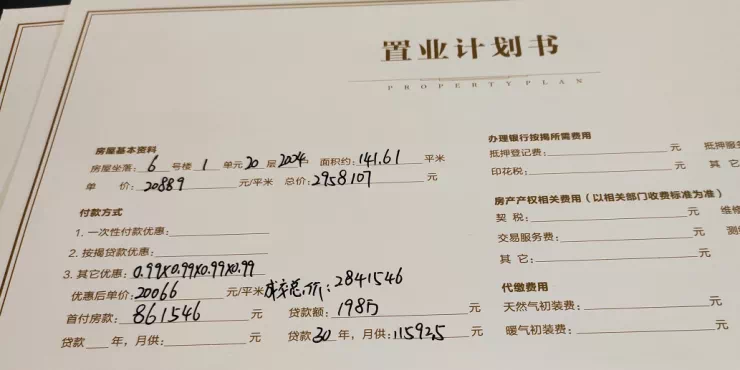 置业计划书
PROPERTY PLAN
房屋基本资料
房屋坐落：6号楼1单元20层2004 面积约：141.61平米
单价：20889元/平米 总价：2958107元
付款方式
1.一次性付款优惠：
2.按揭贷款优惠：
3.其它优惠：0.99×0.99×0.99×0.99
优惠后单价：20066元/平米 成交总价：2841546
首付房款：861546元 贷款额：198万元
贷款 年，月供： 元 贷款30年，月供：11592.5元
办理银行按揭所需费用
抵押登记费： 元 抵押服务
印花税： 元 其它
房产产权相关费用（以相关部门收费标准为准）
契税： 元 维修
交易服务费： 元 测绘
其它： 元
代缴费用
天然气初装费： 元
暖气初装费： 元